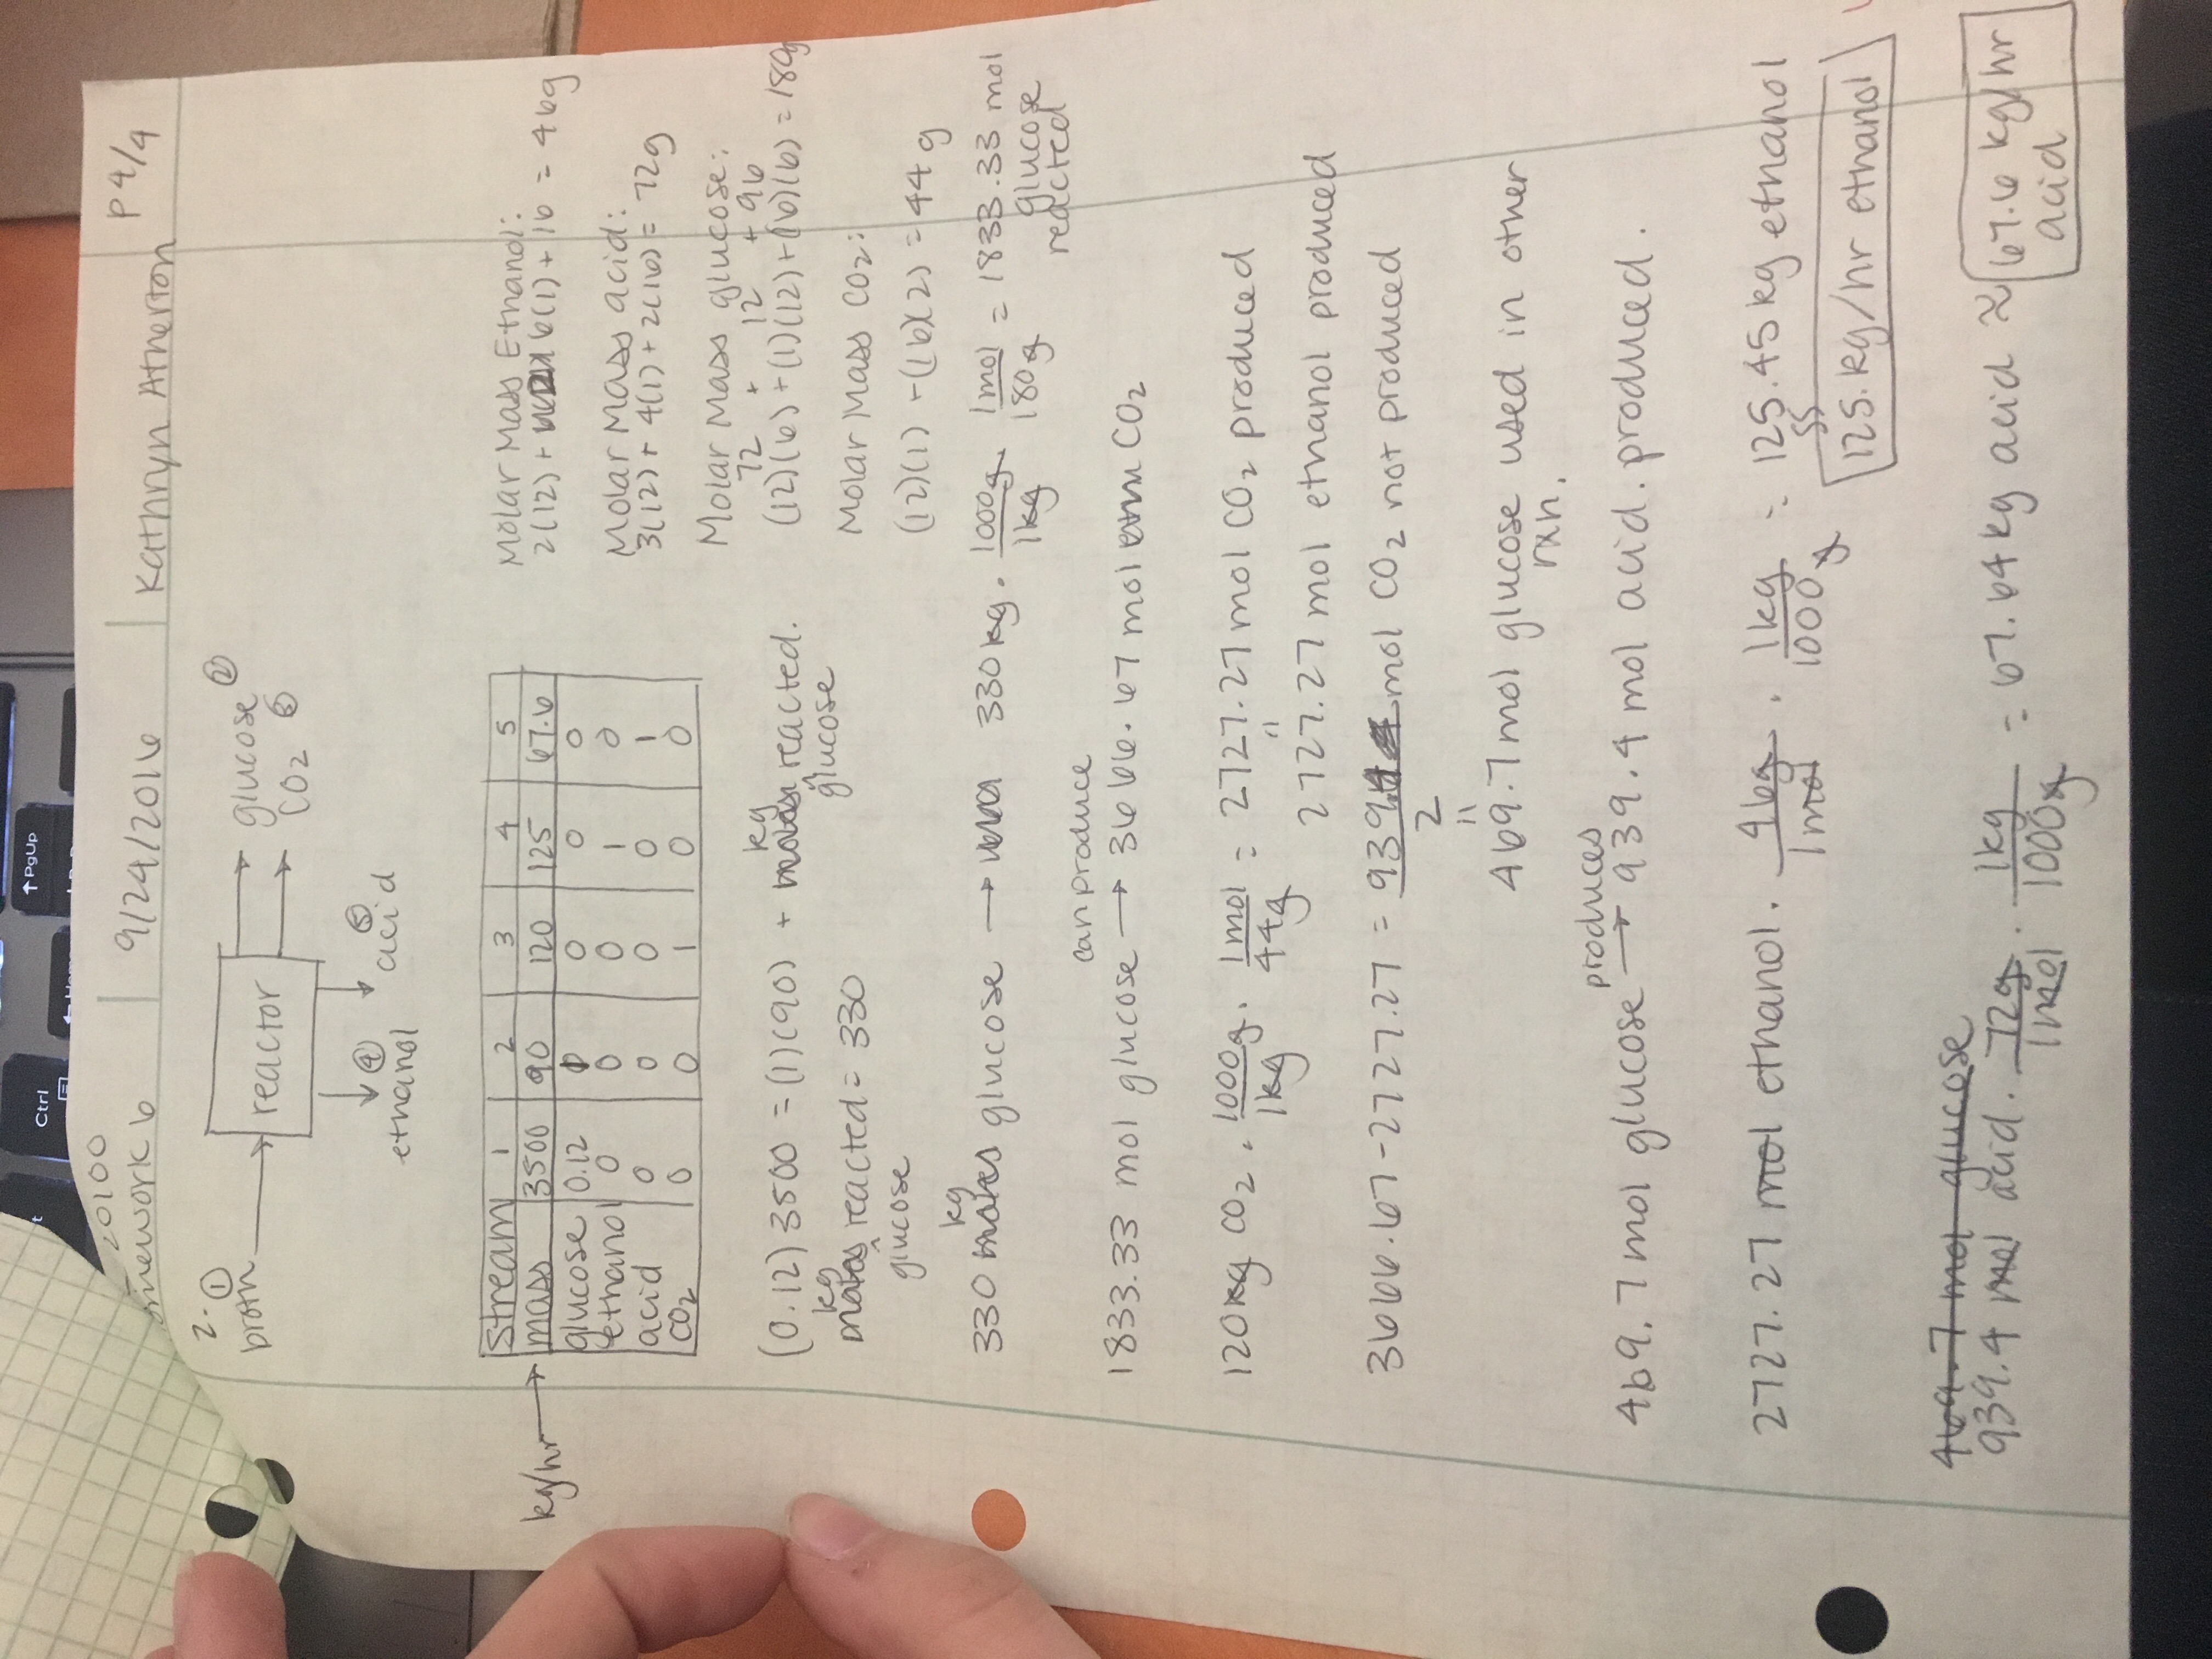 Ctrl
↑ PgUp
20100
mework 6
9/24/2016
Kathryn Atherton
P4/4
2.
①
broth
reactor
glucose ②
CO2 ③
④
ethanol
⑤
acid
kg/hr
stream 1 2 3 4 5
mass 3500 90 120 125 67.6
glucose 0.12 1 0 0 0
ethanol 0 0 0 1 0
acid 0 0 0 0 1
CO2 0 0 1 0 0
Molar Mass Ethanol:
2(12) + 6(1) + 16 = 46g
Molar Mass acid:
3(12) + 4(1) + 2(16) = 72g
Molar Mass glucose:
72 + 12 + 96
(12)(6) + (1)(12) + (16)(6) = 180g
Molar Mass CO2:
(12)(1) + (16)(2) = 44 g
kg
(0.12) 3500 = (1)(90) + moles reacted.
glucose
kg
moles reacted = 330
glucose
kg
330 moles glucose → 330 kg · 1000g/1kg · 1mol/180g = 1833.33 mol
glucose
reacted
can produce
1833.33 mol glucose → 3666.67 mol CO2
120kg CO2 · 1000g/1kg · 1mol/44g = 2727.27 mol CO2 produced
=
2727.27 mol ethanol produced
3666.67 - 2727.27 = 939.4 mol CO2 not produced
2
=
469.7 mol glucose used in other
rxn.
produces
469.7 mol glucose → 939.4 mol acid. produced.
2727.27 mol ethanol · 46g/1mol · 1kg/1000g = 125.45 kg ethanol
≈
125. kg/hr ethanol
469.7 mol glucose
939.4 mol acid · 72g/1mol · 1kg/1000g = 67.64 kg acid ≈ 67.6 kg/hr
acid